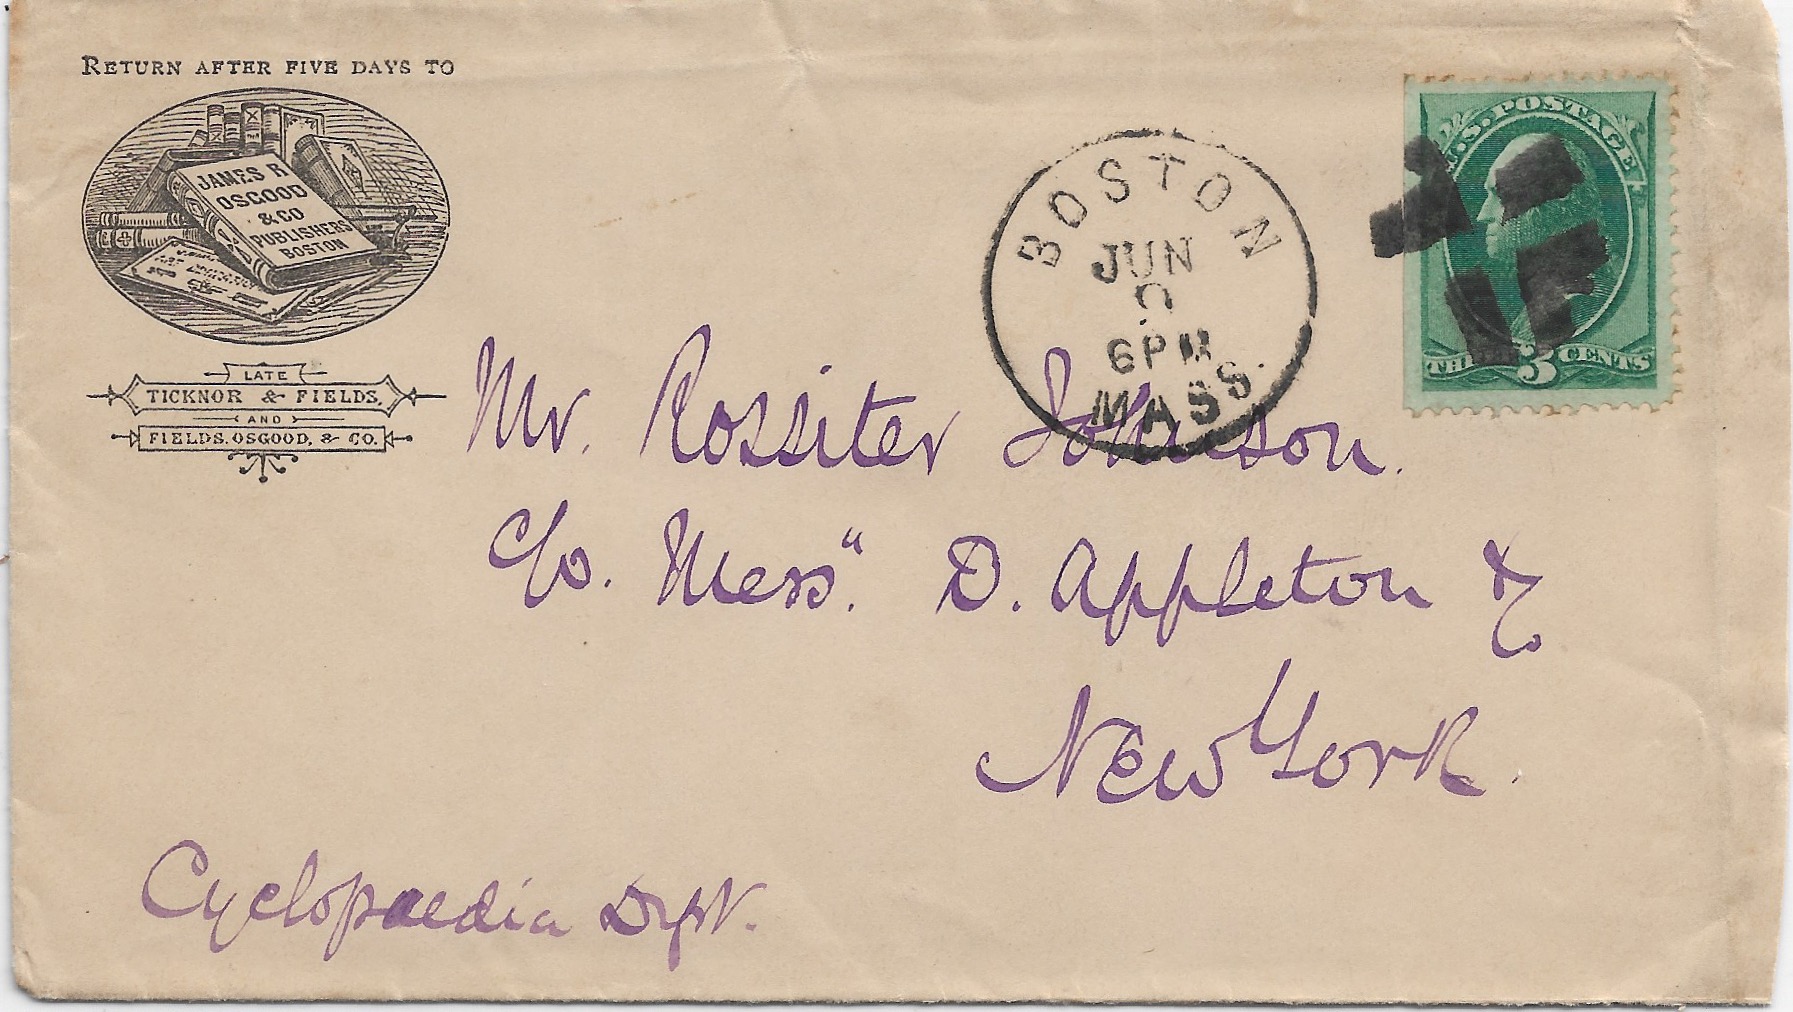 RETURN AFTER FIVE DAYS TO
JAMES R
OSGOOD
& CO
PUBLISHERS
BOSTON
LATE
TICKNOR & FIELDS,
AND
FIELDS, OSGOOD, & CO.
BOSTON
JUN
6 PM
MASS.
U.S. POSTAGE
THREE 3 CENTS
Mr. Rossiter Johnson.
c/o. Mess". D. Appleton & Co
New York.
Cyclopaedia Dept.